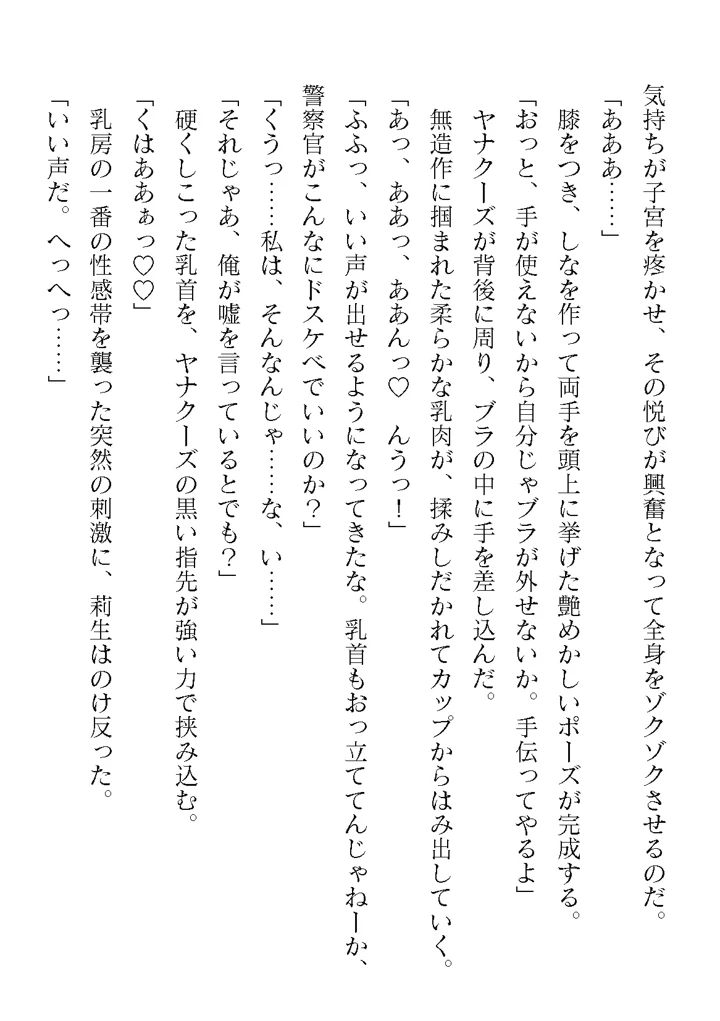 気持ちが子宮を疼かせ、その悦びが興奮となって全身をゾクゾクさせるのだ。
「あああ……」
膝をつき、しなを作って両手を頭上に挙げた艶めかしいポーズが完成する。
「おっと、手が使えないから自分じゃブラが外せないか。手伝ってやるよ」
ヤナクーズが背後に周り、ブラの中に手を差し込んだ。
無造作に掴まれた柔らかな乳肉が、揉みしだかれてカップからはみ出していく。
「あっ、ああっ、ああんっ♡　んうっ！」
「ふふっ、いい声が出せるようになってきたな。乳首もおっ立ててんじゃねーか、
警察官がこんなにドスケベでいいのか？」
「くうっ……私は、そんなんじゃ……な、い……」
「それじゃあ、俺が嘘を言っているとでも？」
硬くしこった乳首を、ヤナクーズの黒い指先が強い力で挟み込む。
「くはああぁっ♡♡」
乳房の一番の性感帯を襲った突然の刺激に、莉生はのけ反った。
「いい声だ。へっへっ……」